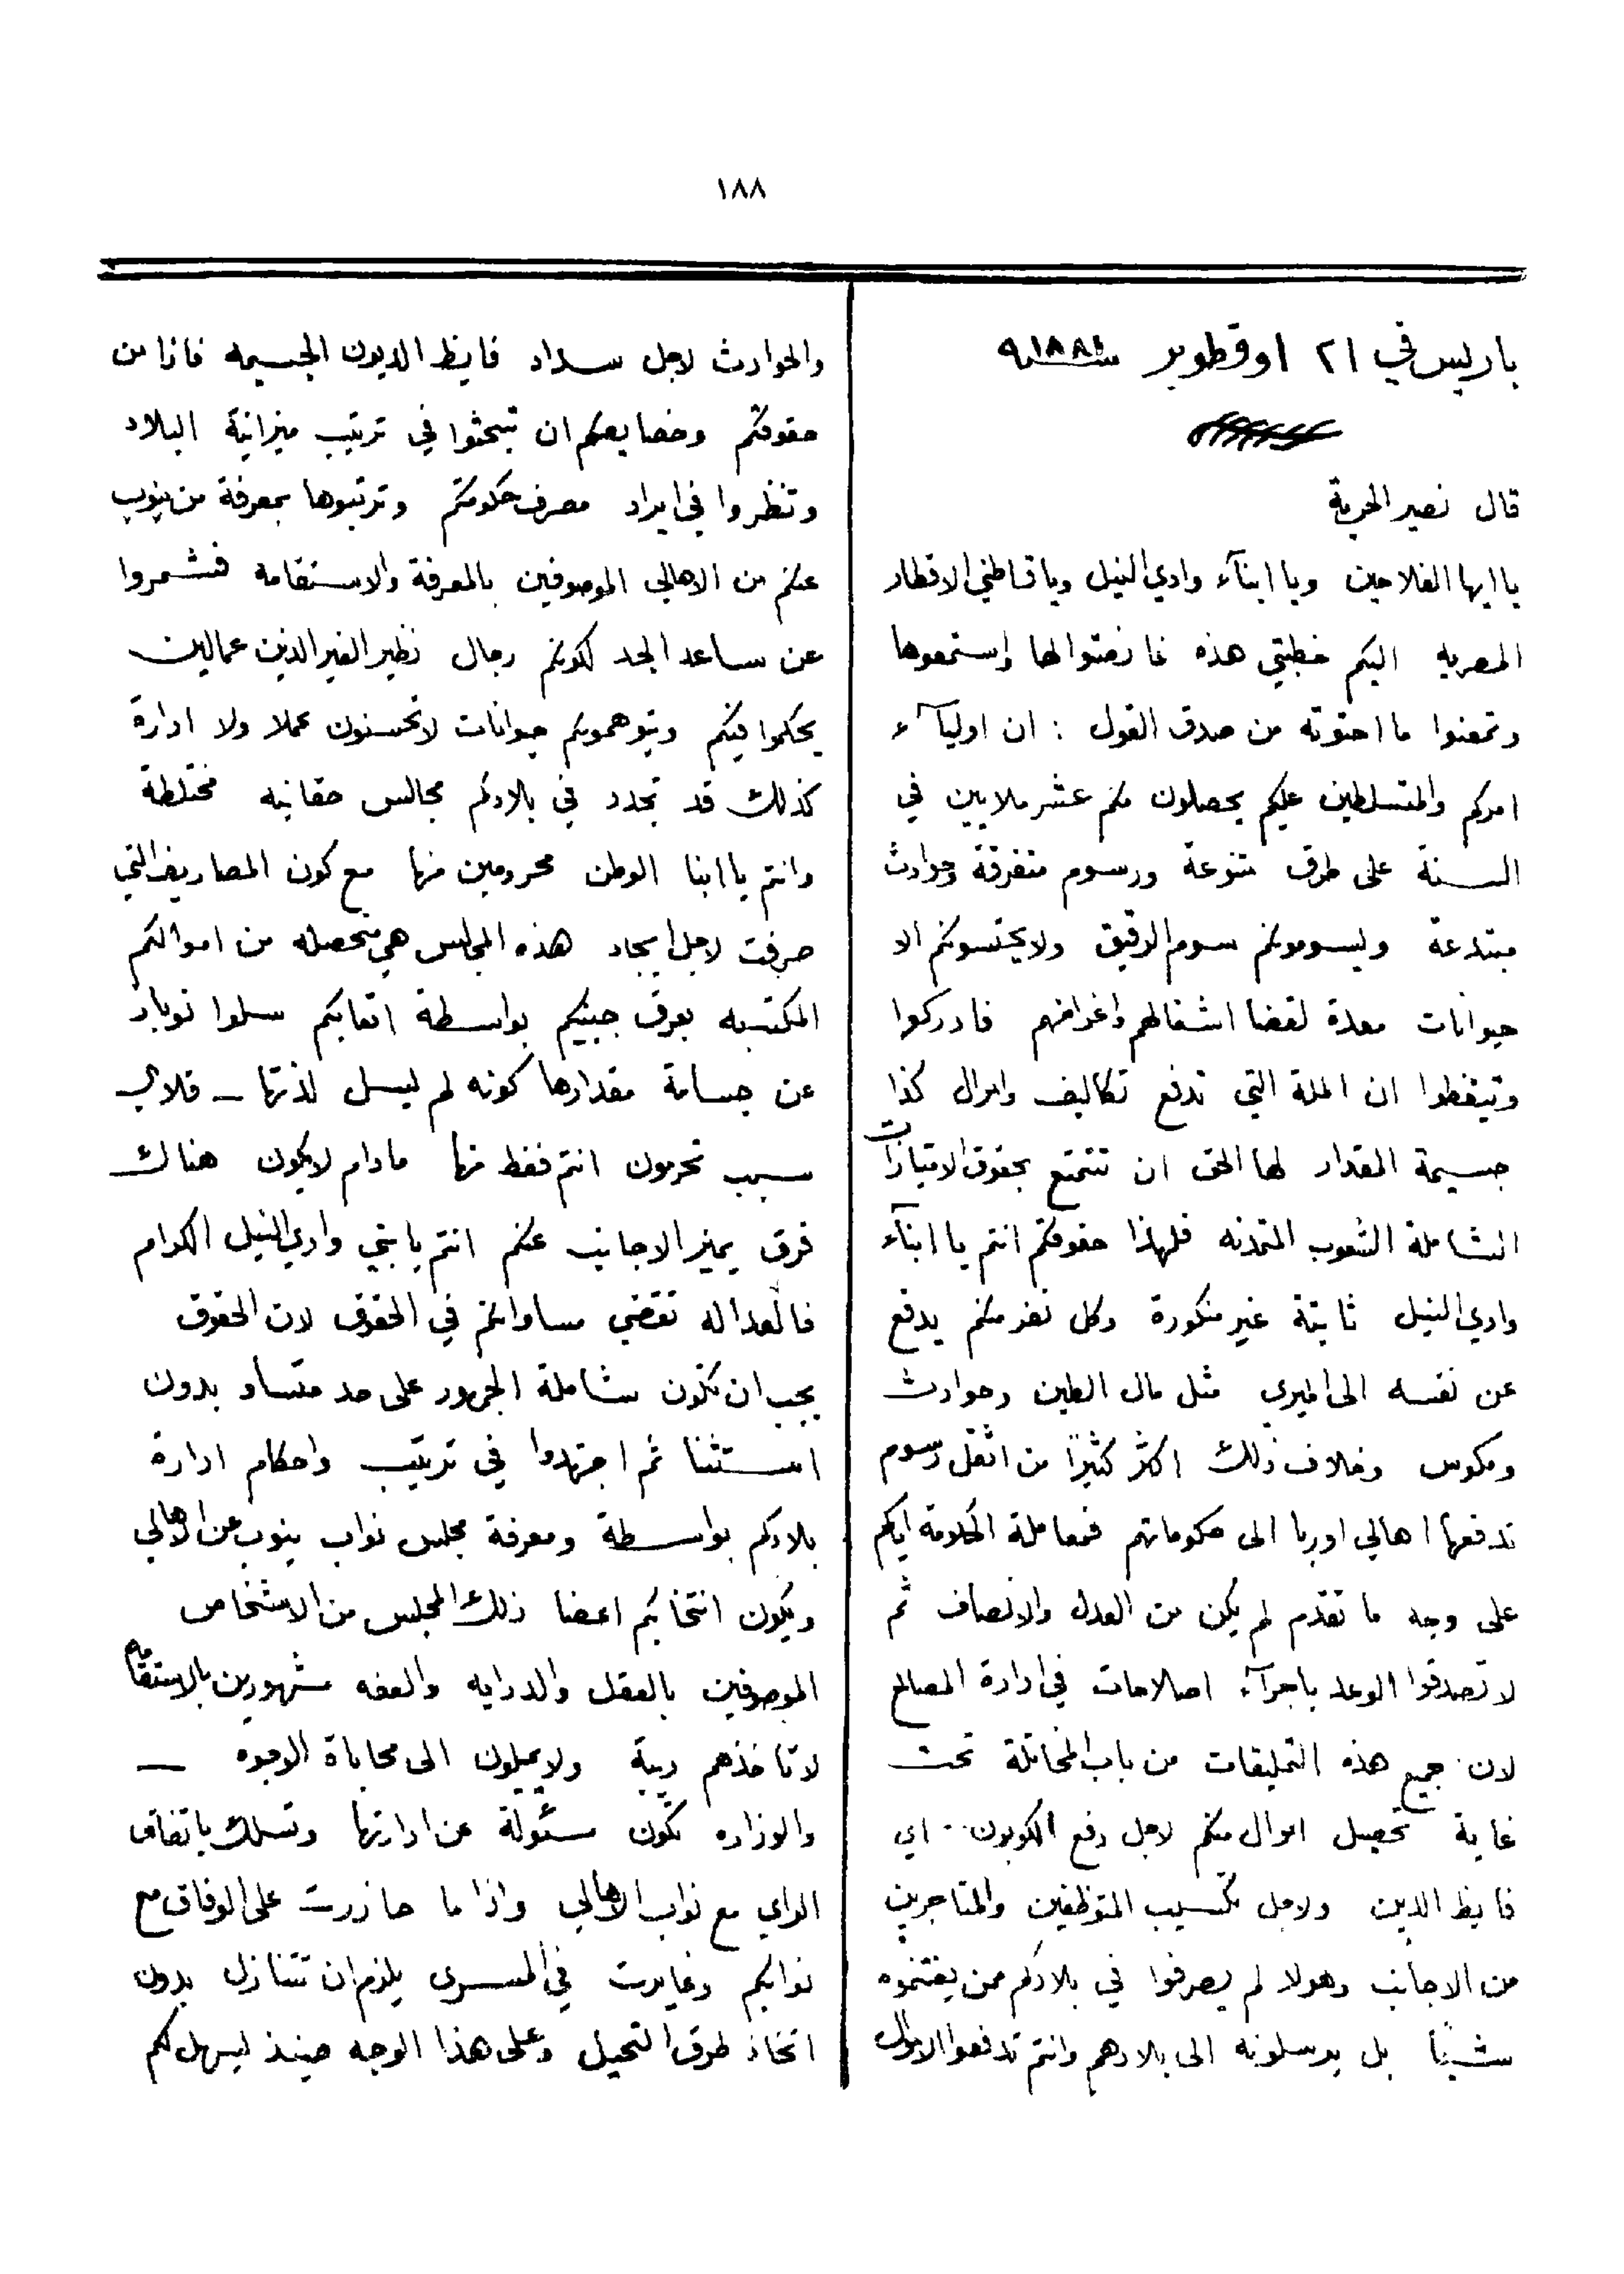 ١٨٨
باريس في ٢١ اوقطوبر سنة ١٨٨٤
قال نصير الحرية
يا ايها الفلاحين ويا ابنآء وادي النيل ويا قاطني الاقطار
المصريه اليكم خطبتي هذه فانصتوا لها واستمعوها
وتمعنوا ما احتوته من صدق القول : ان اوليآء
امركم والمتسلطين عليكم يحصلون منكم عشر ملايين في
السنة على طرق متنوعة ورسوم متفرقة وحوادث
مبتدعة ويسومونكم سوم الرقيق ولا يحتسبونكم الا
حيوانات معدة لقضا اشغالهم واغراضهم فادركوا
وتيقظوا ان الملة التي تدفع تكاليف واموال كذا
جسيمة المقدار لها الحق ان تتمتع بحقوق الامتيازات
الشاملة الشعوب المتمدنه فلهذا حقوقكم انتم يا ابنآء
وادي النيل ثابتة غير منكورة وكل نفر منكم يدفع
عن نفسه الى الميري مثل مال الطين وحوادث
ومكوس وخلاف ذلك اكثر كثيرًا من اثقل رسوم
تدفعها اهالي اوربا الى حكوماتهم فمعاملة الحكومة اياكم
على وجه ما تقدم لم يكن من العدل والانصاف ثم
لا تصدقوا الوعد باجرآء اصلاحات في ادارة المصالح
لان جميع هذه التمليقات من باب المخاتلة تحت
غاية تحصيل اموال منكم لاجل دفع الكوبون .. اي
فايظ الدين ولاجل تكسيب المتوظفين والمتاجرين
من الاجانب وهولا لم يصرفوا في بلادكم ممن يغتنموه
شيئًا بل يرسلونه الى بلادهم وانتم تدفعوا الاموال
والحوادث لاجل سداد فايظ الديون الجسيمه فاذا من
حقوقكم وخصايصكم ان تبحثوا في ترتيب ميزانية البلاد
وتنظروا في ايراد مصرف حكومتكم وترتبوها بمعرفة من ينوب
عنكم من الاهالي الموصوفين بالمعرفة والاستقامه فشمروا
عن ساعد الجد لكونكم رجال نظير الغير الذين عمالين
يحكموا فيكم ويتوهموكم حيوانات لا تحسنون عملا ولا ادارة
كذلك قد تجدد في بلادكم مجالس حقانيه مختلطة
وانتم يا ابنا الوطن محرومين منها مع كون المصاريف التي
صرفت لاجل ايجاد هذه المجلس هي متحصله من اموالكم
المكتسبه بعرق جبينكم بواسطة اتعابكم سلوا نوبار
عن جسامة مقدارها كونه لم ليسل لذتها ــ فلاي
سبب تحرمون انتم فقط منها مادام لا يكون هناك
فرق يميز الاجانب عنكم انتم يا بني وادي النيل الكرام
فالعداله تقضي مساواتكم في الحقوق لان الحقوق
يجب ان تكون شاملة الجمهور على حد متساو بدون
استثنا ثم اجتهدوا في ترتيب واحكام ادارة
بلادكم بواسطة ومعرفة مجلس نواب ينوب عن الاهالي
ويكون انتخابكم اعضا ذلك المجلس من الاشخاص
الموصوفين بالعقل والدرايه والعفه مشهورين بالاستقامه
لا تاخذهم ريبة ولا يميلون الى محاباة الوجوه ــ
والوزاره تكون مسئولة عن ادارتها وتسلك باتفاق
الراي مع نواب الاهالي واذا ما حازت على الوفاق مع
نوابكم وغايرت في المسرى يلزم ان تتنازل بدون
اتخاذ طرق التحيل وعلى هذا الوجه حينئذ ليسهل لكم